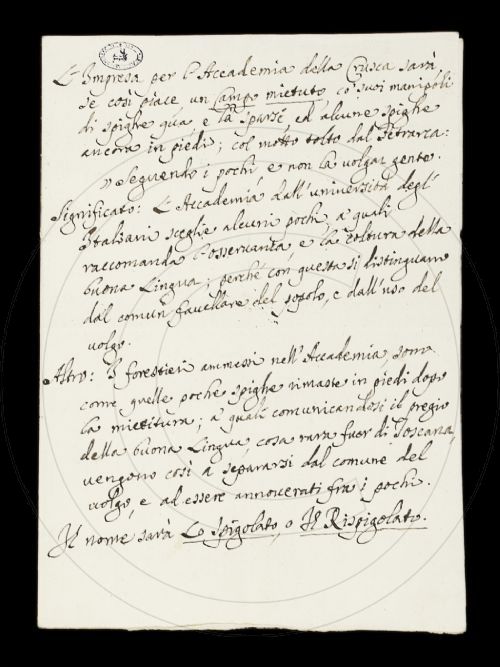 L'Impresa per l'Accademia della Crusca sarà,
se così piace, un Campo mietuto, co' suoi manipoli
di spighe qua, e là sparsi, ed alcune spighe
ancora in piedi; col motto tolto dal Petrarca:
Seguendo i pochi e non la volgar gente.
Significato: L'Accademia dall'università degl'
Italiani sceglie alcuni pochi, a' quali
raccomanda l'osservanza, e la coltura della
buona Lingua; perché con questa si distinguano
dal comun favellare del popolo, e dall'uso del
volgo.
Altro: I forestieri ammessi nell'Accademia, sono
come quelle poche spighe rimaste in piedi dopo
la mietitura; a' quali comunicandosi il pregio
della buona Lingua, cosa rara fuor di Toscana,
vengono così a separarsi dal comune del
volgo, e ad essere annoverati fra i pochi.
Il nome sarà Lo Spigolato, o Il Rispigolato.